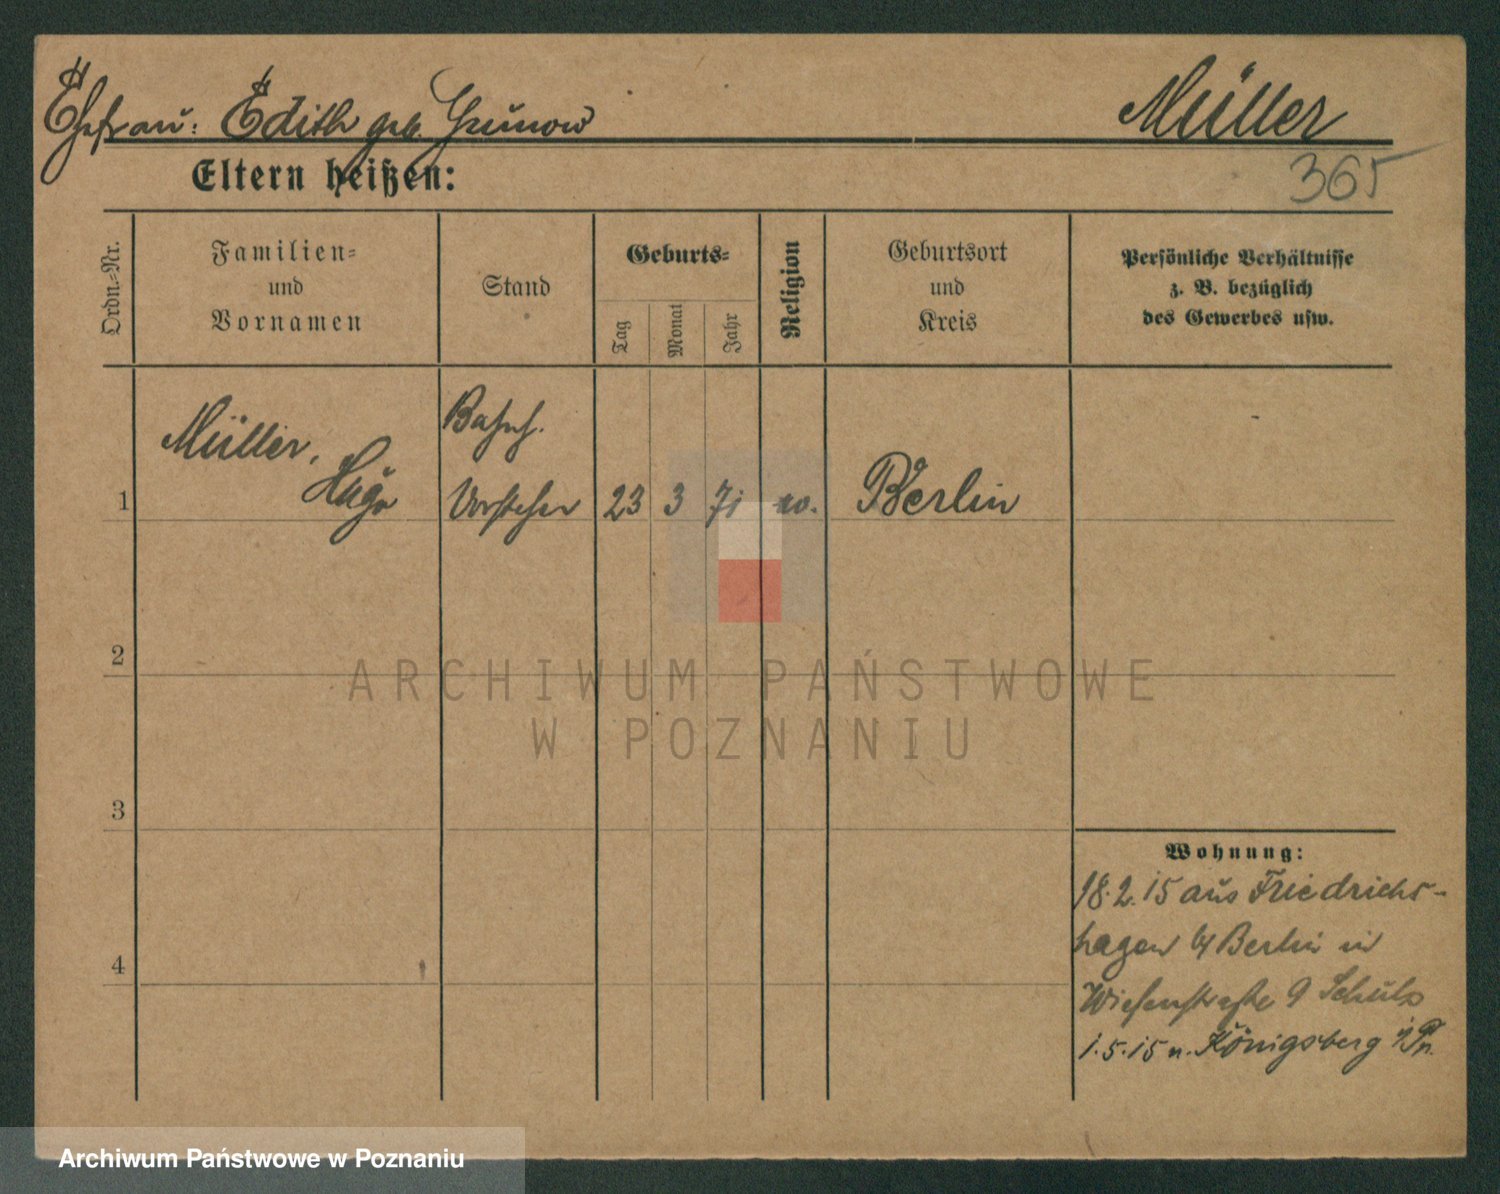 Ehefrau: Edith geb. Grunow
Müller
365
Eltern heißen:
Ordn.=Nr.
Familien=
und
Vornamen
Stand
Geburts=
Tag
Monat
Jahr
Religion
Geburtsort
und
Kreis
Persönliche Verhältnisse
z. B. bezüglich
des Gewerbes usw.
1
Müller,
Hugo
Bahnh.
Vorsteher
23
3
71
ev.
Berlin
2
3
4
Wohnung:
18.2.15 aus Friedrichs-
hagen b/ Berlin in
Wiesenstraße 9 Schulz
1.5.15 n. Königsberg i/Pr.
ARCHIWUM PAŃSTWOWE
W POZNANIU
Archiwum Państwowe w Poznaniu